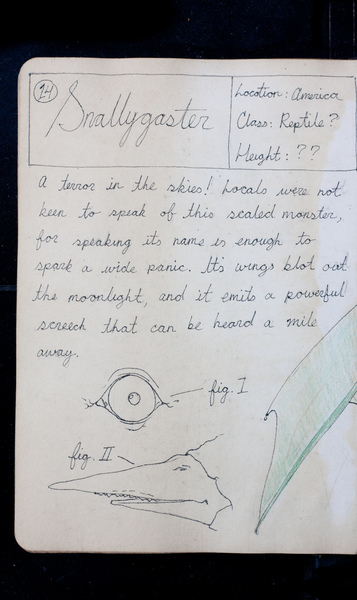 14
Snallygaster
Location: America
Class: Reptile?
Height: ??
A terror in the skies! Locals were not
keen to speak of this scaled monster,
for speaking its name is enough to
spark a wide panic. Its wings blot out
the moonlight, and it emits a powerful
screech that can be heard a mile
away.
fig. I
fig. II